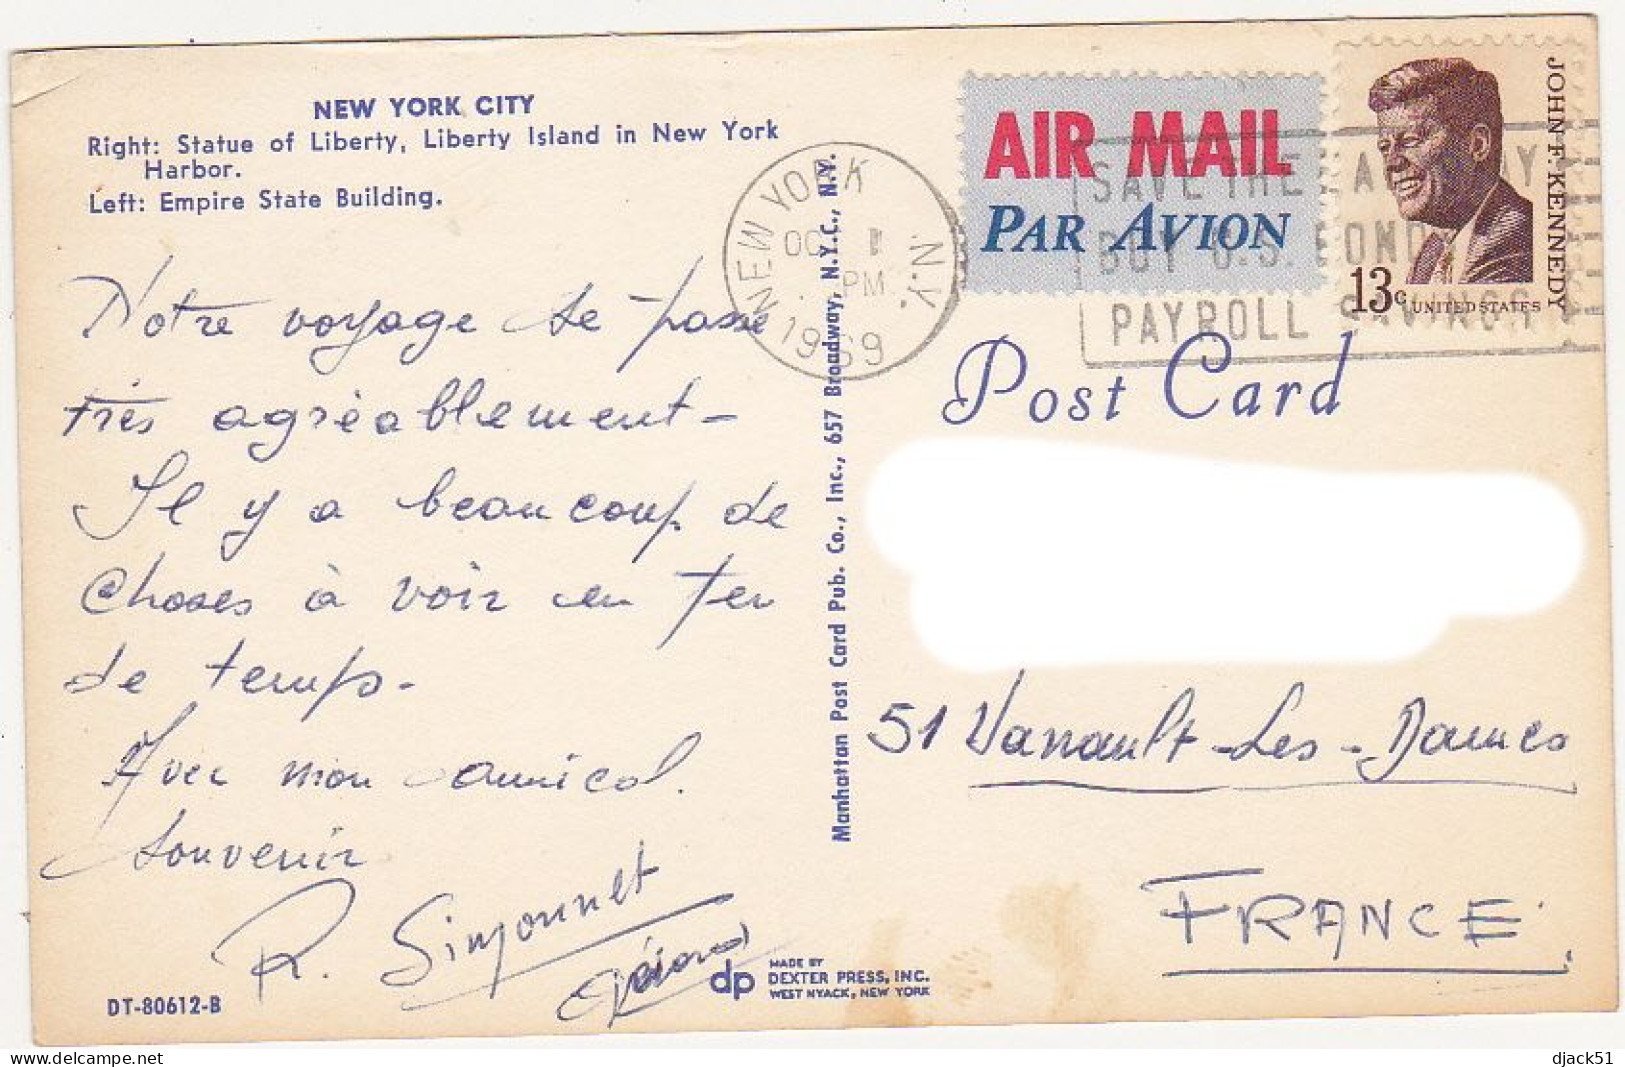 NEW YORK CITY
Right: Statue of Liberty, Liberty Island in New York
Harbor.
Left: Empire State Building.
Notre voyage se passe
très agréablement -
Il y a beaucoup de
choses à voir en peu
de temps -
Avec mon amical
souvenir
R. Simonnet
Gérard
DT-80612-B
dp
MADE BY
DEXTER PRESS, INC.
WEST NYACK, NEW YORK
Manhattan Post Card Pub. Co., Inc., 657 Broadway, N.Y.C., N.Y.
NEW YORK N.Y.
PM
1969
AIR MAIL
PAR AVION
SAVE THE EASY WAY
BUY U.S. BONDS
PAYROLL SAVINGS
JOHN F. KENNEDY
13c UNITED STATES
Post Card
51 Vanault-Les-Dames
FRANCE
djack51